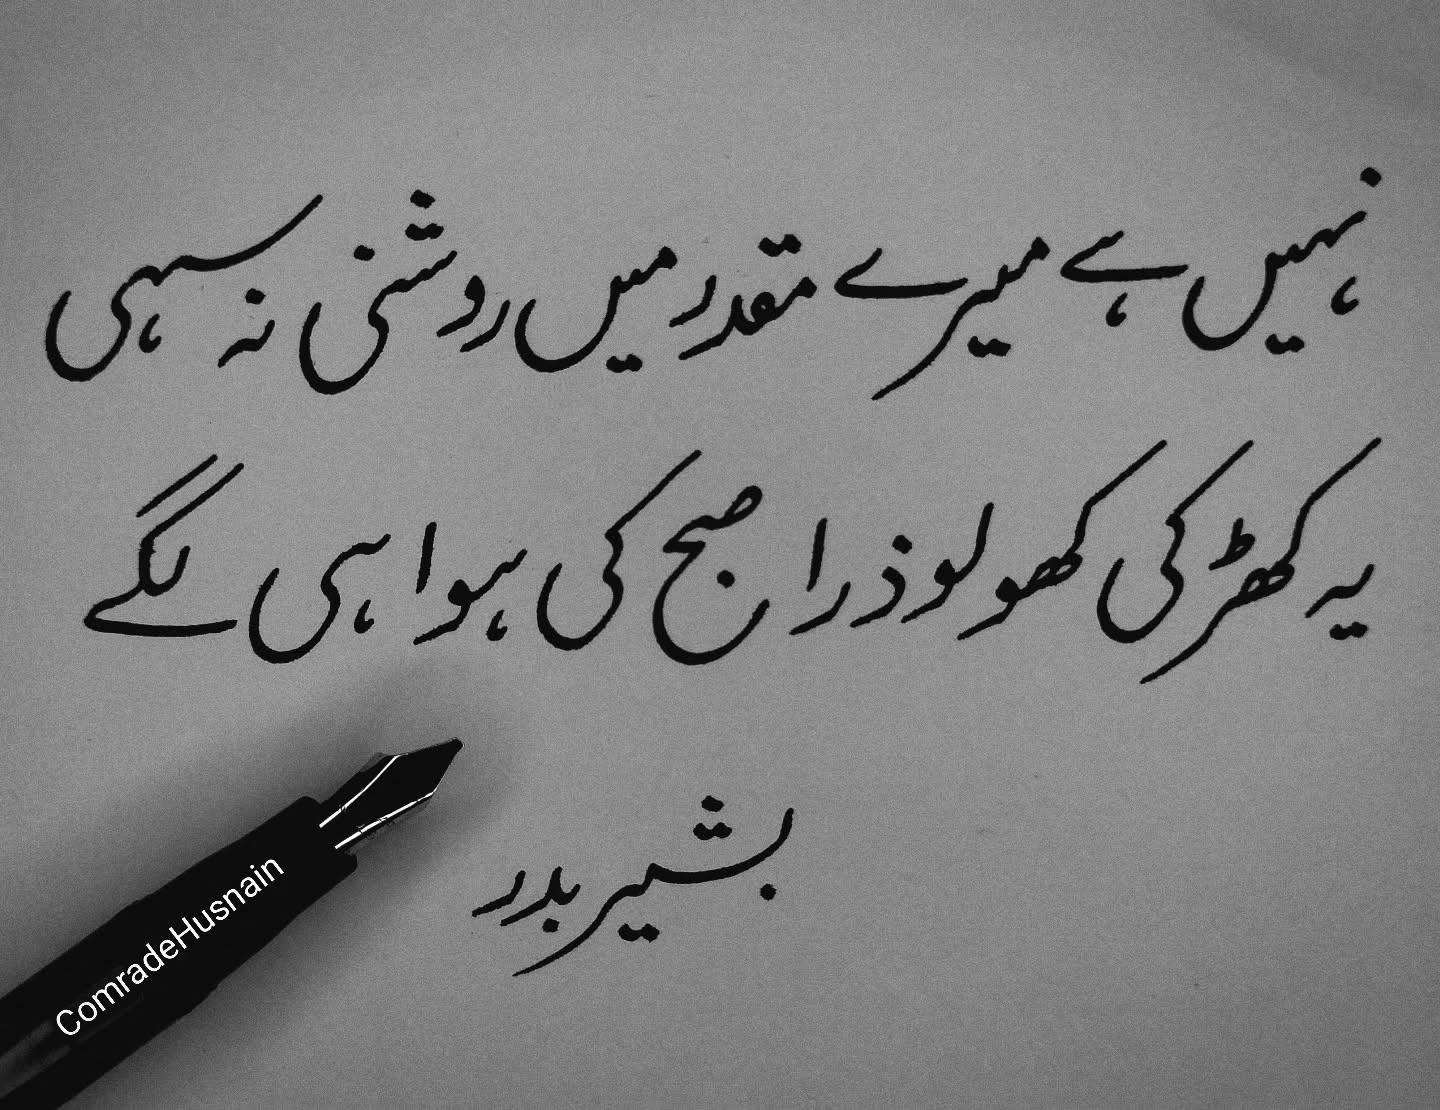 نہیں ہے میرے مقدر میں روشنی نہ سہی
یہ کھڑکی کھولو ذرا صبح کی ہوا ہی لگے
بشیر بدر
ComradeHusnain